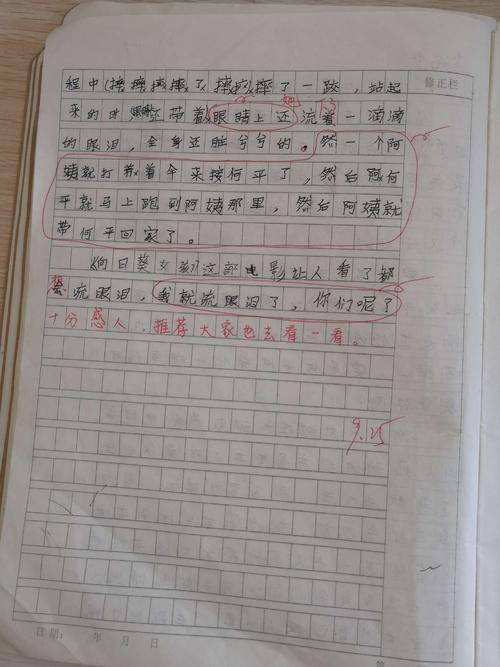 修正栏
程中(摔摔摔摔了(摔摔)摔了一跤,站起
来的时候还带着眼睛上还流着一滴滴
的眼泪,全身还脏兮兮的。然一个阿
姨就打着伞来接何平了,然后何
平就马上跑到阿姨那里,然后阿姨就
带何平回家了。
《向日葵女孩》这部电影让人看了都
想流眼泪,我就流眼泪了,你们呢?
十分感人,推荐大家也去看一看。
9.25
日期: 年 月 日
第